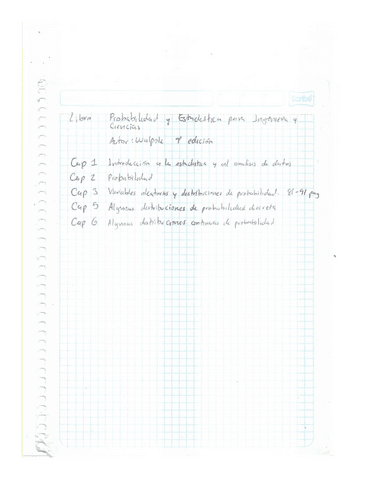 Scribe
Libro Probabilidad y Estadística para Ingeniería y
Ciencias
Autor: Walpole 9ª edición
Cap 1 Introducción a la estadística y al análisis de datos
Cap 2 Probabilidad
Cap 3 Variables aleatorias y distribuciones de probabilidad 81-91 pag
Cap 5 Algunas distribuciones de probabilidad discreta
Cap 6 Algunas distribuciones continuas de probabilidad